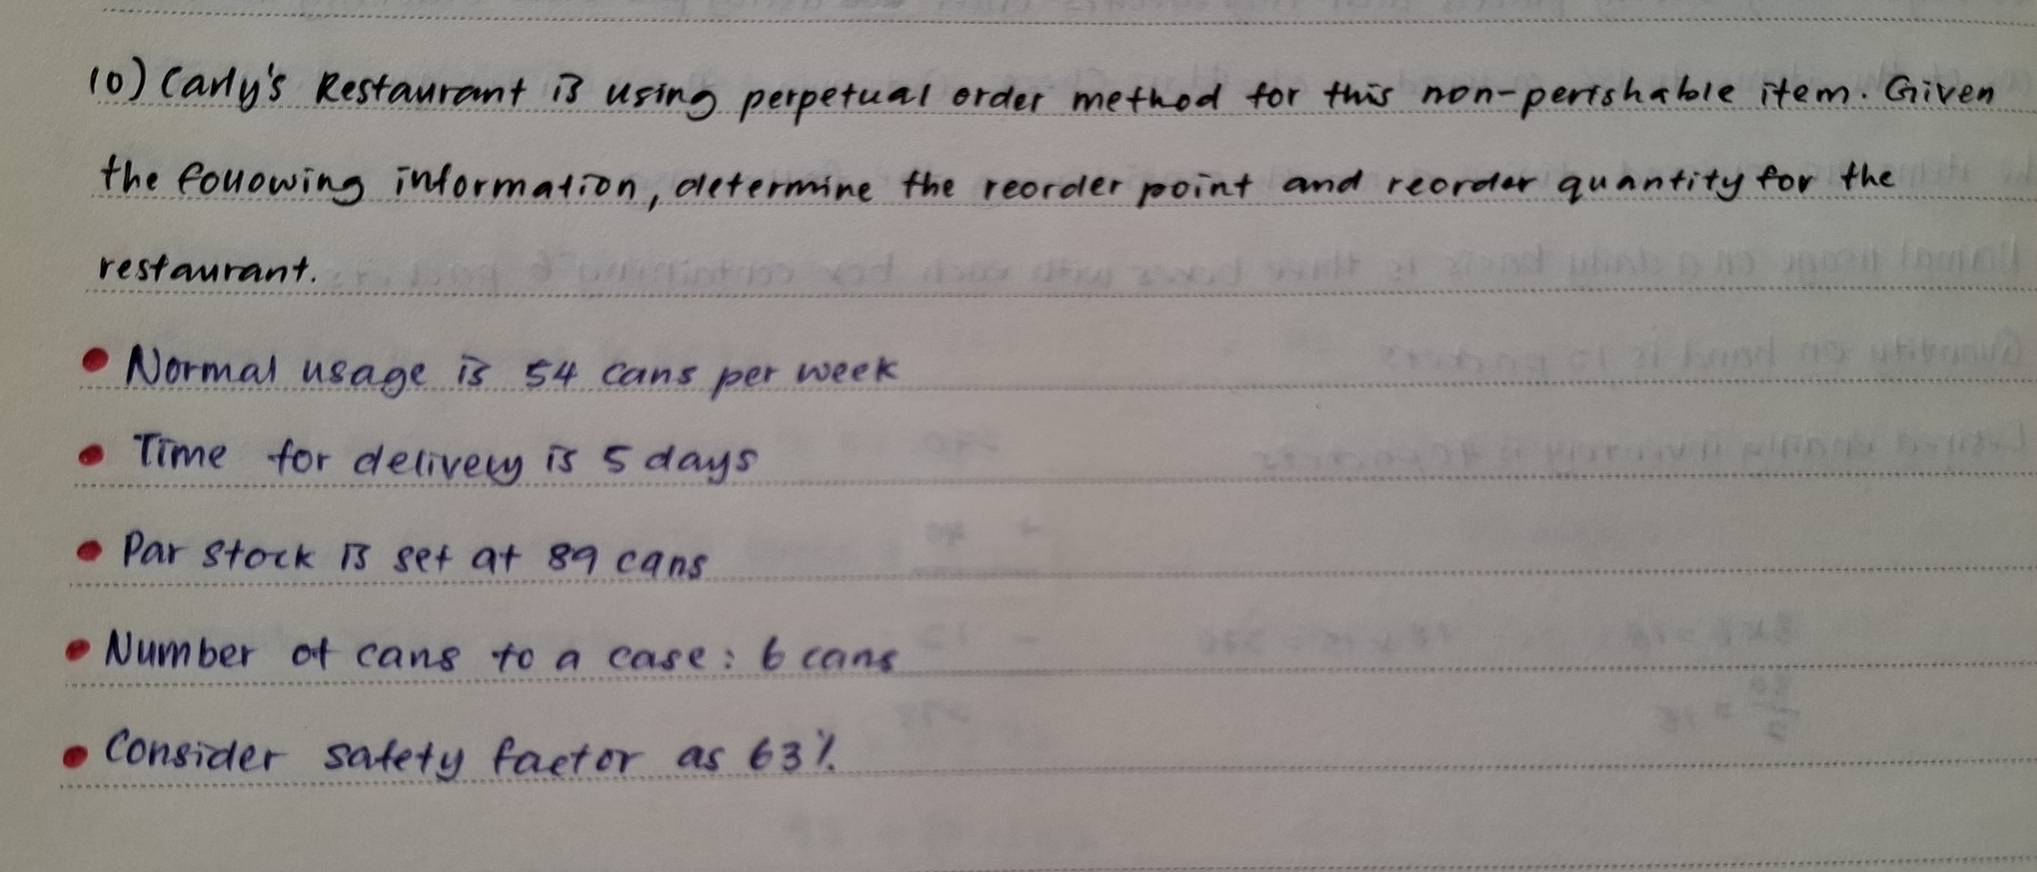 10) Carly's Restaurant is using perpetual order method for this non-perishable item. Given
the following information, determine the reorder point and reorder quantity for the
restaurant.
• Normal usage is 54 cans per week
• Time for delivery is 5 days
• Par stock is set at 89 cans
• Number of cans to a case: 6 cans
• Consider safety factor as 63%.